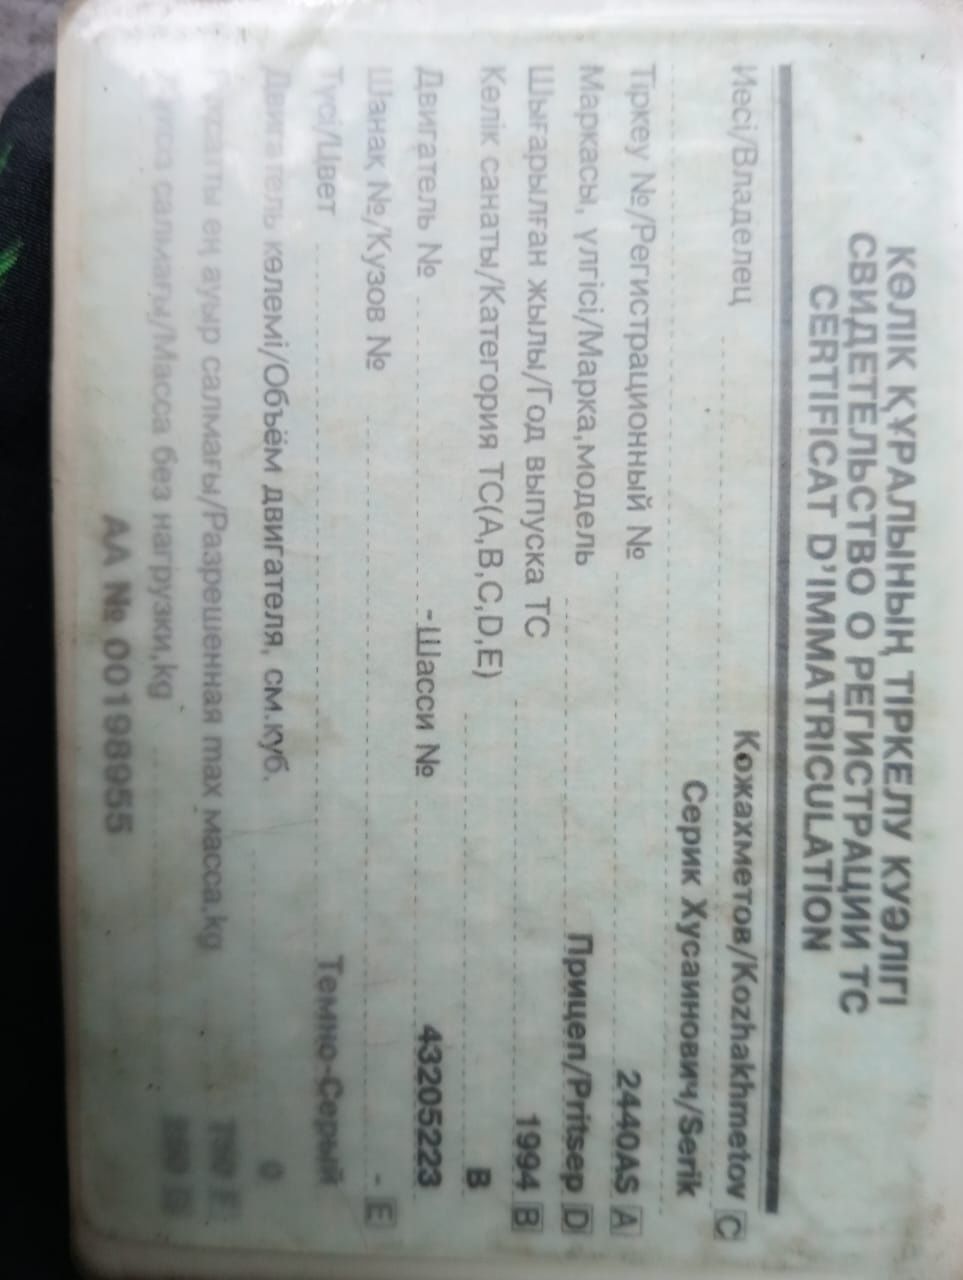 КӨЛІК ҚҰРАЛЫНЫҢ ТІРКЕЛУ КУӘЛІГІ
СВИДЕТЕЛЬСТВО О РЕГИСТРАЦИИ ТС
CERTIFICAT D'IMMATRICULATION
Иесі/Владелец Кожахметов/Kozhakhmetov C
Серик Хусаинович/Serik
Тіркеу №/Регистрационный № 2440AS A
Маркасы, үлгісі/Марка,модель Прицеп/Pritsep D
Шығарылған жылы/Год выпуска ТС 1994 B
Көлік санаты/Категория ТС(A,B,C,D,E) B
Двигатель № -Шасси № 43205223
Шанақ №/Кузов № - E
Түсі/Цвет Темно-Серый
Двигатель көлемі/Объём двигателя, см.куб. 0
ең ауыр салмағы/Разрешенная max масса,kg F
салмағы/Масса без нагрузки,kg G
АА № 00198955